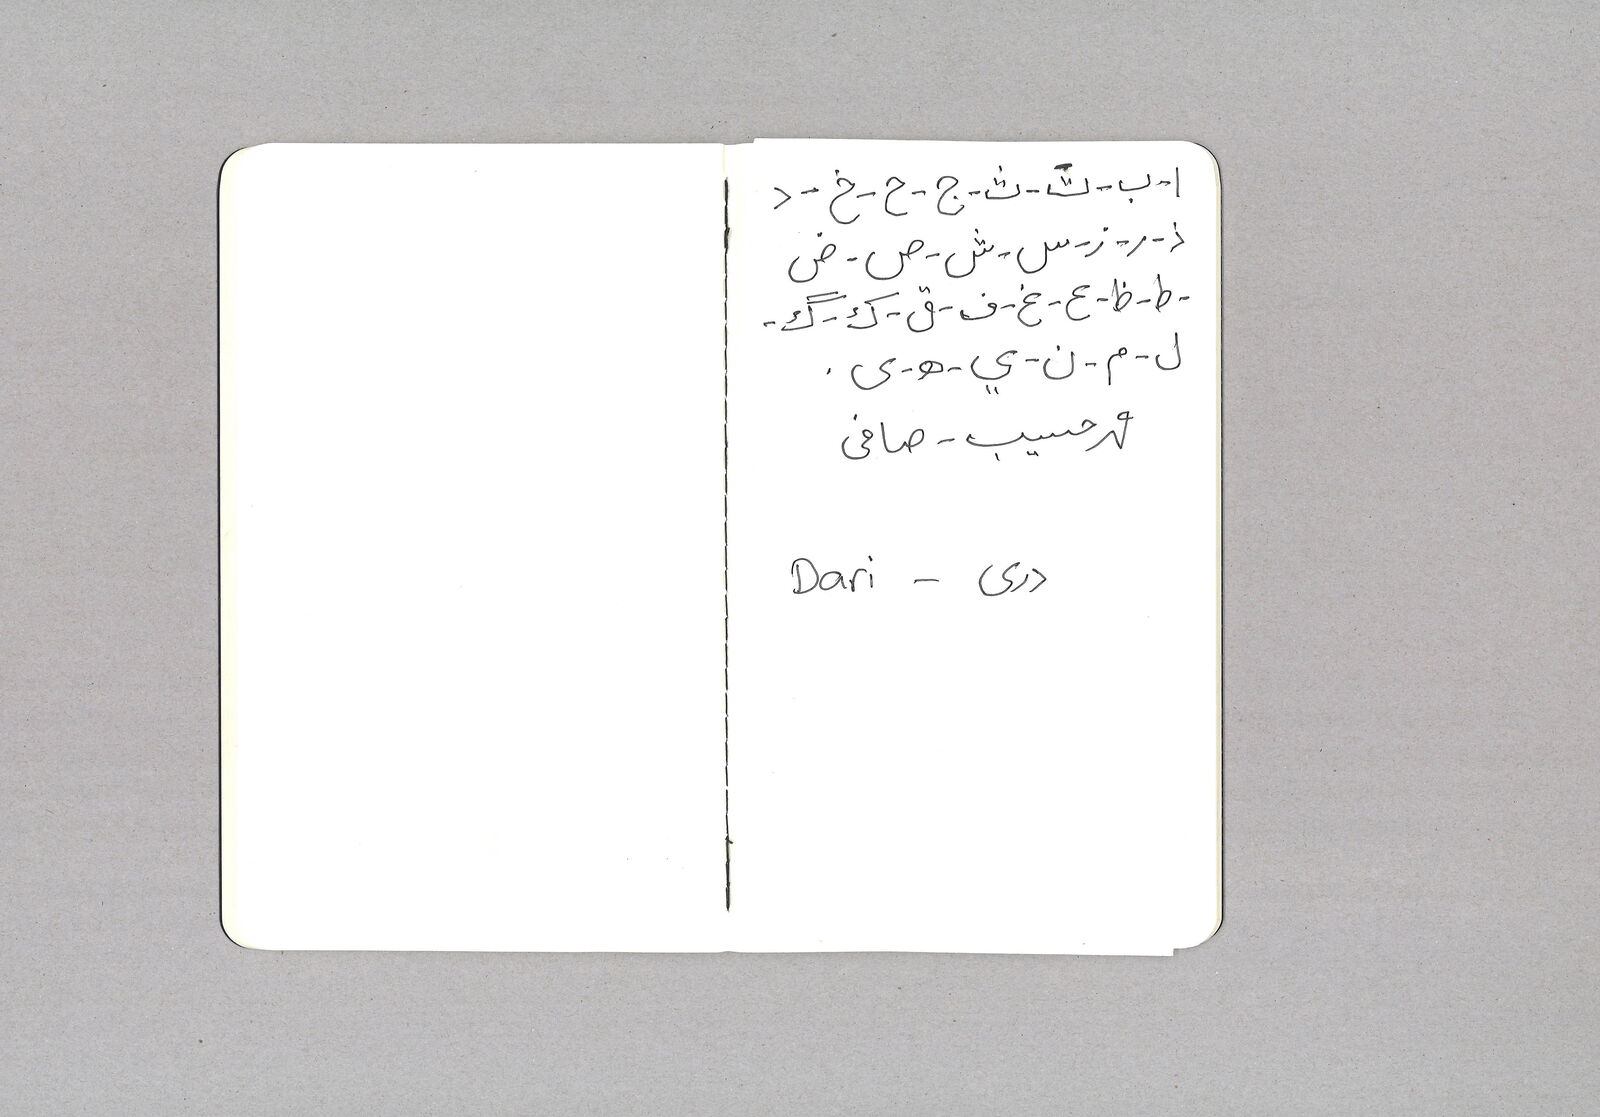 ا-ب-ت-ث-ج-ح-خ-د
ذ-ر-ز-س-ش-ص-ض
-ط-ظ-ع-غ-ف-ق-ک-گ-
ل-م-ن-ي-ه-ی.
حسیب - صافی
Dari - دری